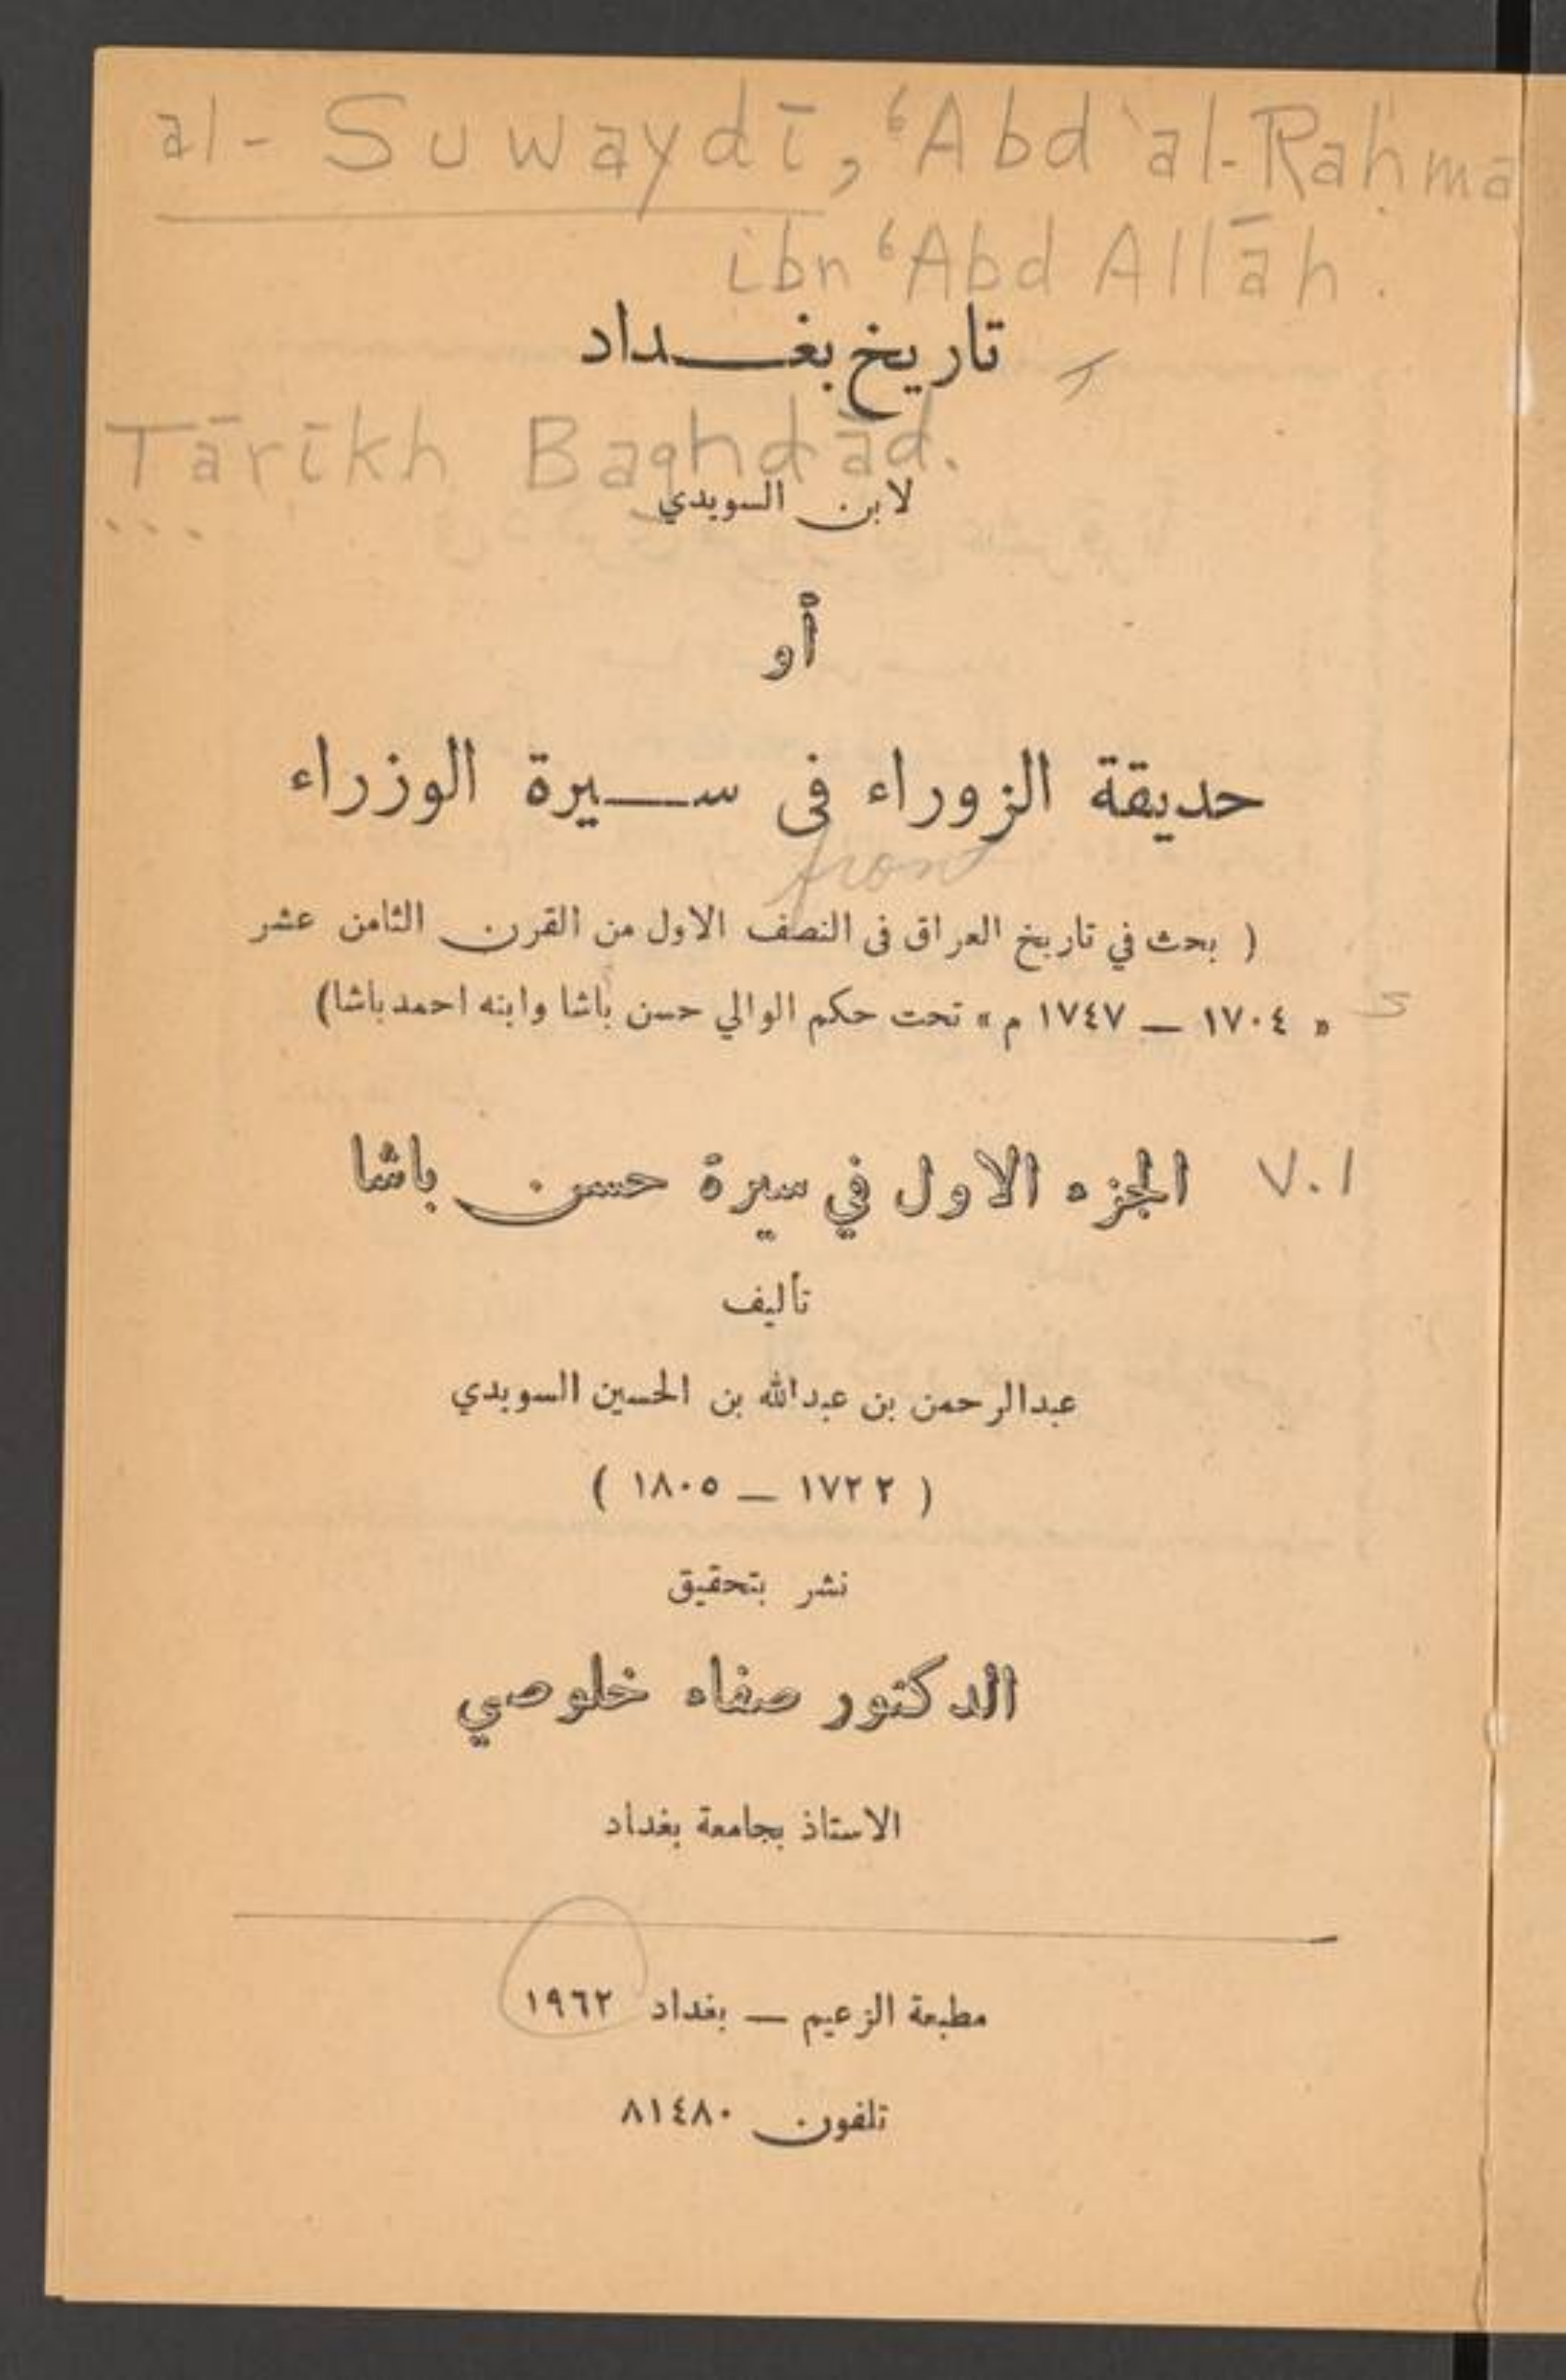 al-Suwaydī, ‘Abd al-Rahma
ibn ‘Abd Allāh.
تاريخ بغداد
Tārīkh Baghdād.
لابن السويدي
أو
حديقة الزوراء فى سيرة الوزراء
front
( بحث في تاريخ العراق فى النصف الاول من القرن الثامن عشر
« ١٧٠٤ — ١٧٤٧ م » تحت حكم الوالي حسن باشا وابنه احمد باشا)
الجزء الاول في سيرة حسن باشا v.1
تأليف
عبدالرحمن بن عبدالله بن الحسين السويدي
( ١٧٢٢ — ١٨٠٥ )
نشر بتحقيق
الدكتور صفاء خلوصي
الاستاذ بجامعة بغداد
مطبعة الزعيم — بغداد ١٩٦٢
تلفون ٨١٤٨٠